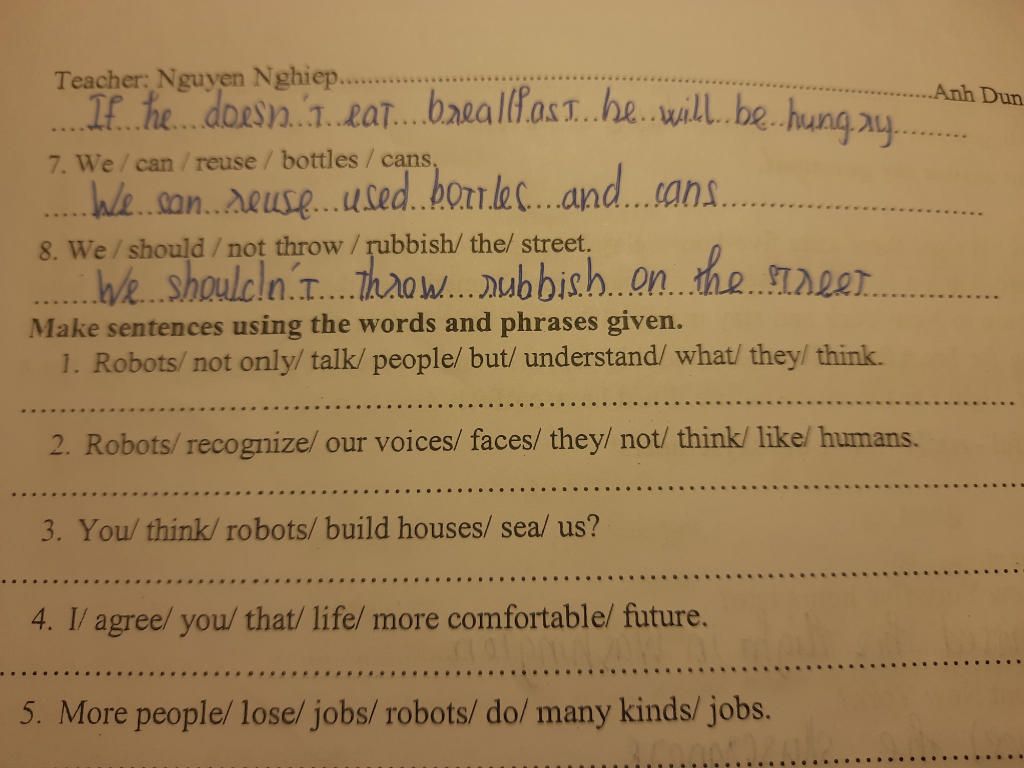 Teacher: Nguyen Nghiep..........Anh Dun
If he doesn't eat breakfast he will be hungry
7. We / can / reuse / bottles / cans.
We can reuse used bottles and cans
8. We / should / not throw / rubbish/ the/ street.
We shouldn't throw rubbish on the street
Make sentences using the words and phrases given.
1. Robots/ not only/ talk/ people/ but/ understand/ what/ they/ think.
2. Robots/ recognize/ our voices/ faces/ they/ not/ think/ like/ humans.
3. You/ think/ robots/ build houses/ sea/ us?
4. I/ agree/ you/ that/ life/ more comfortable/ future.
5. More people/ lose/ jobs/ robots/ do/ many kinds/ jobs.